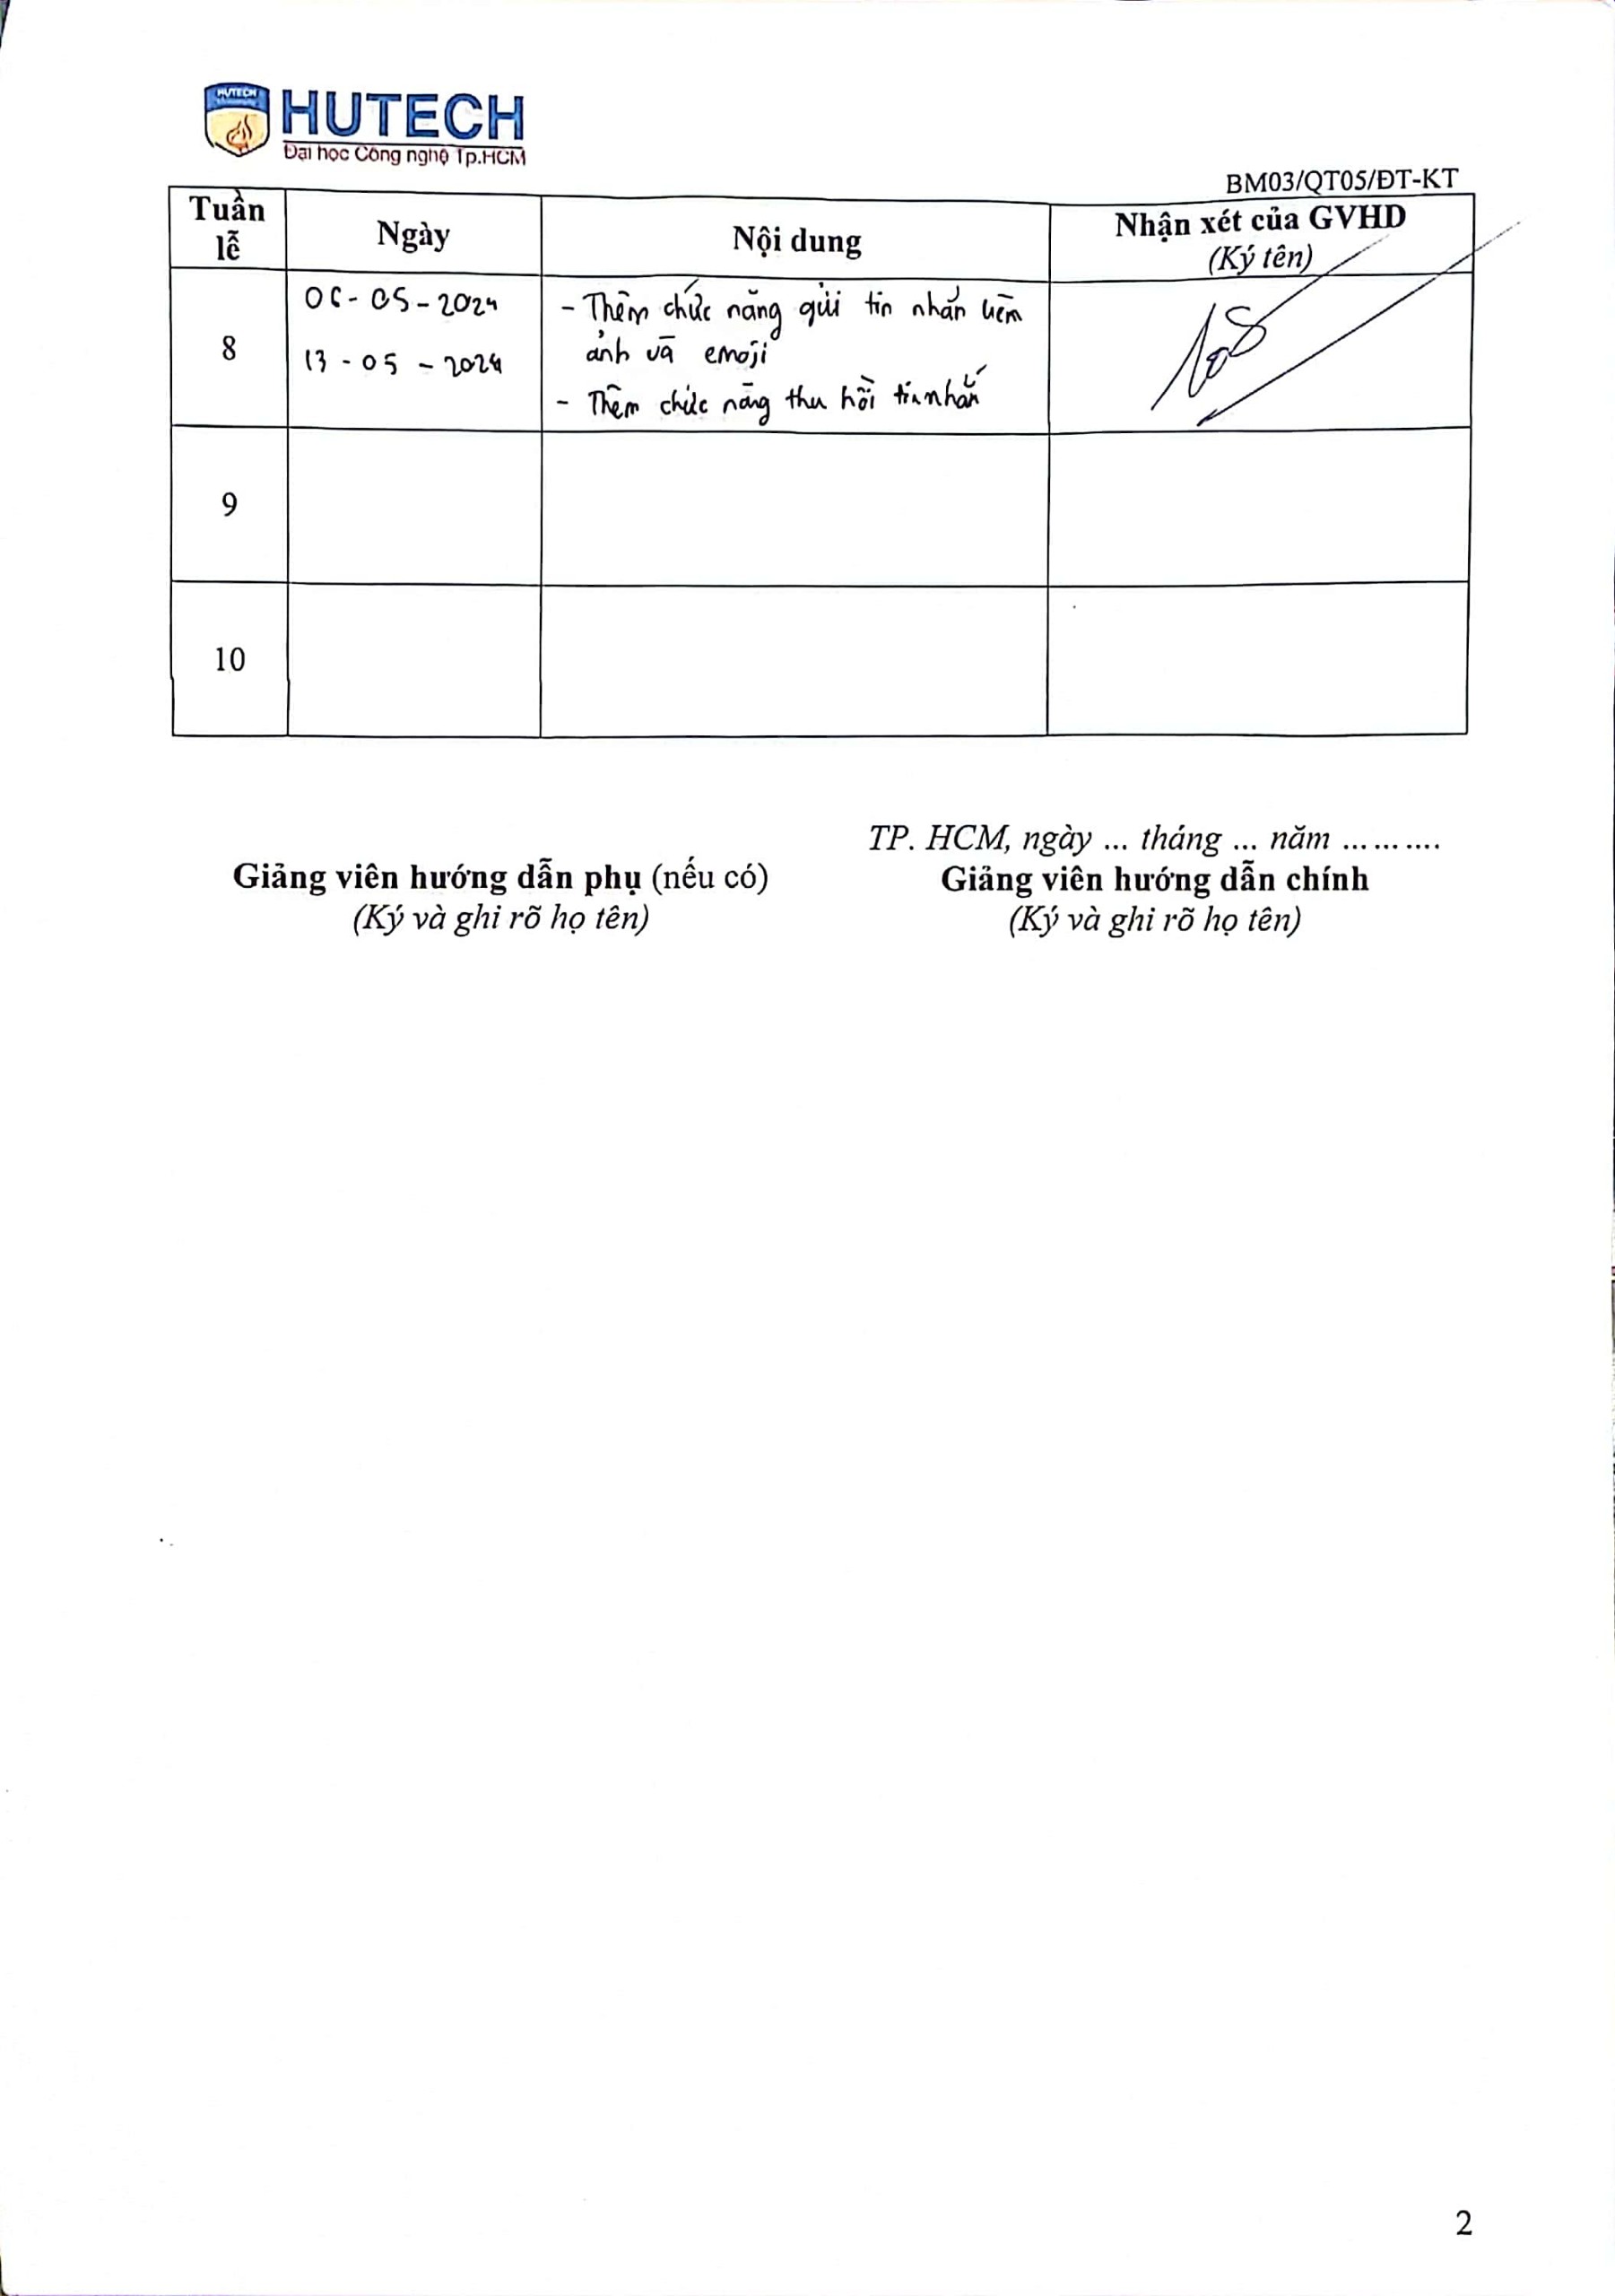 HUTECH
HUTECH
Đại học Công nghệ Tp.HCM
BM03/QT05/ĐT-KT
Tuần lễ
Ngày
Nội dung
Nhận xét của GVHD
(Ký tên)
8
06-05-2024
13-05-2024
- Thêm chức năng gửi tin nhắn kèm
ảnh và emoji
- Thêm chức năng thu hồi tin nhắn
9
10
TP. HCM, ngày ... tháng ... năm ..........
Giảng viên hướng dẫn phụ (nếu có)
(Ký và ghi rõ họ tên)
Giảng viên hướng dẫn chính
(Ký và ghi rõ họ tên)
2